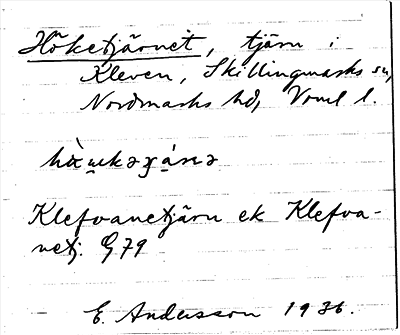 Höketjärnet, tjärn i
Kleven, Skillingmarks sn,
Nordmarks hd, Vrml l.
Klefvanetjärn ek Klefva-
netj. G 79
E. Andersson 1936.